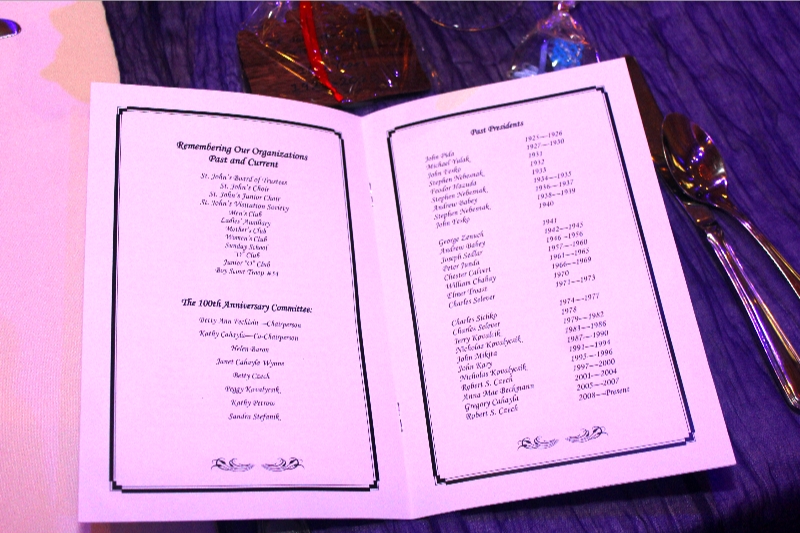 Remembering Our Organizations
Past and Current
St. John's Board of Trustees
St. John's Choir
St. John's Junior Choir
St. John's Visitation Society
Men's Club
Ladies' Auxiliary
Mother's Club
Women's Club
Sunday School
"O" Club
Junior "O" Club
Boy Scout Troop #54
The 100th Anniversary Committee:
Betty Ann Fechisin—Chairperson
Kathy Cahayla—Co-Chairperson
Helen Baran
Janet Cahayla Wynne
Betty Czech
Peggy Kovalycsik
Kathy Petrow
Sandra Stefanik
Past Presidents
John Pida 1925—1926
Michael Yulak 1927—1930
John Fesko 1931
Stephen Nebesnak 1932
Feodor Hazuda 1933
Stephen Nebesnak 1934—1935
Andrew Babey 1936—1937
Stephen Nebesnak 1938—1939
John Fesko 1940
George Zenuch 1941
Andrew Babey 1942—1945
Joseph Sedlar 1946—1956
Peter Junda 1957—1960
Chester Calvert 1961—1965
William Chahay 1966—1969
Elmer Troast 1970
Charles Selover 1971—1973
Charles Sichko 1974—1977
Charles Selover 1978
Jerry Kovalcik 1979—1982
Nicholas Kovalycsik 1983—1986
John Mikita 1987—1990
John Kary 1991—1994
Nicholas Kovalycsik 1995—1996
Robert S. Czech 1997—2000
Anna Mae Beckmann 2001—2004
Gregory Cahayla 2005—2007
Robert S. Czech 2008—Present